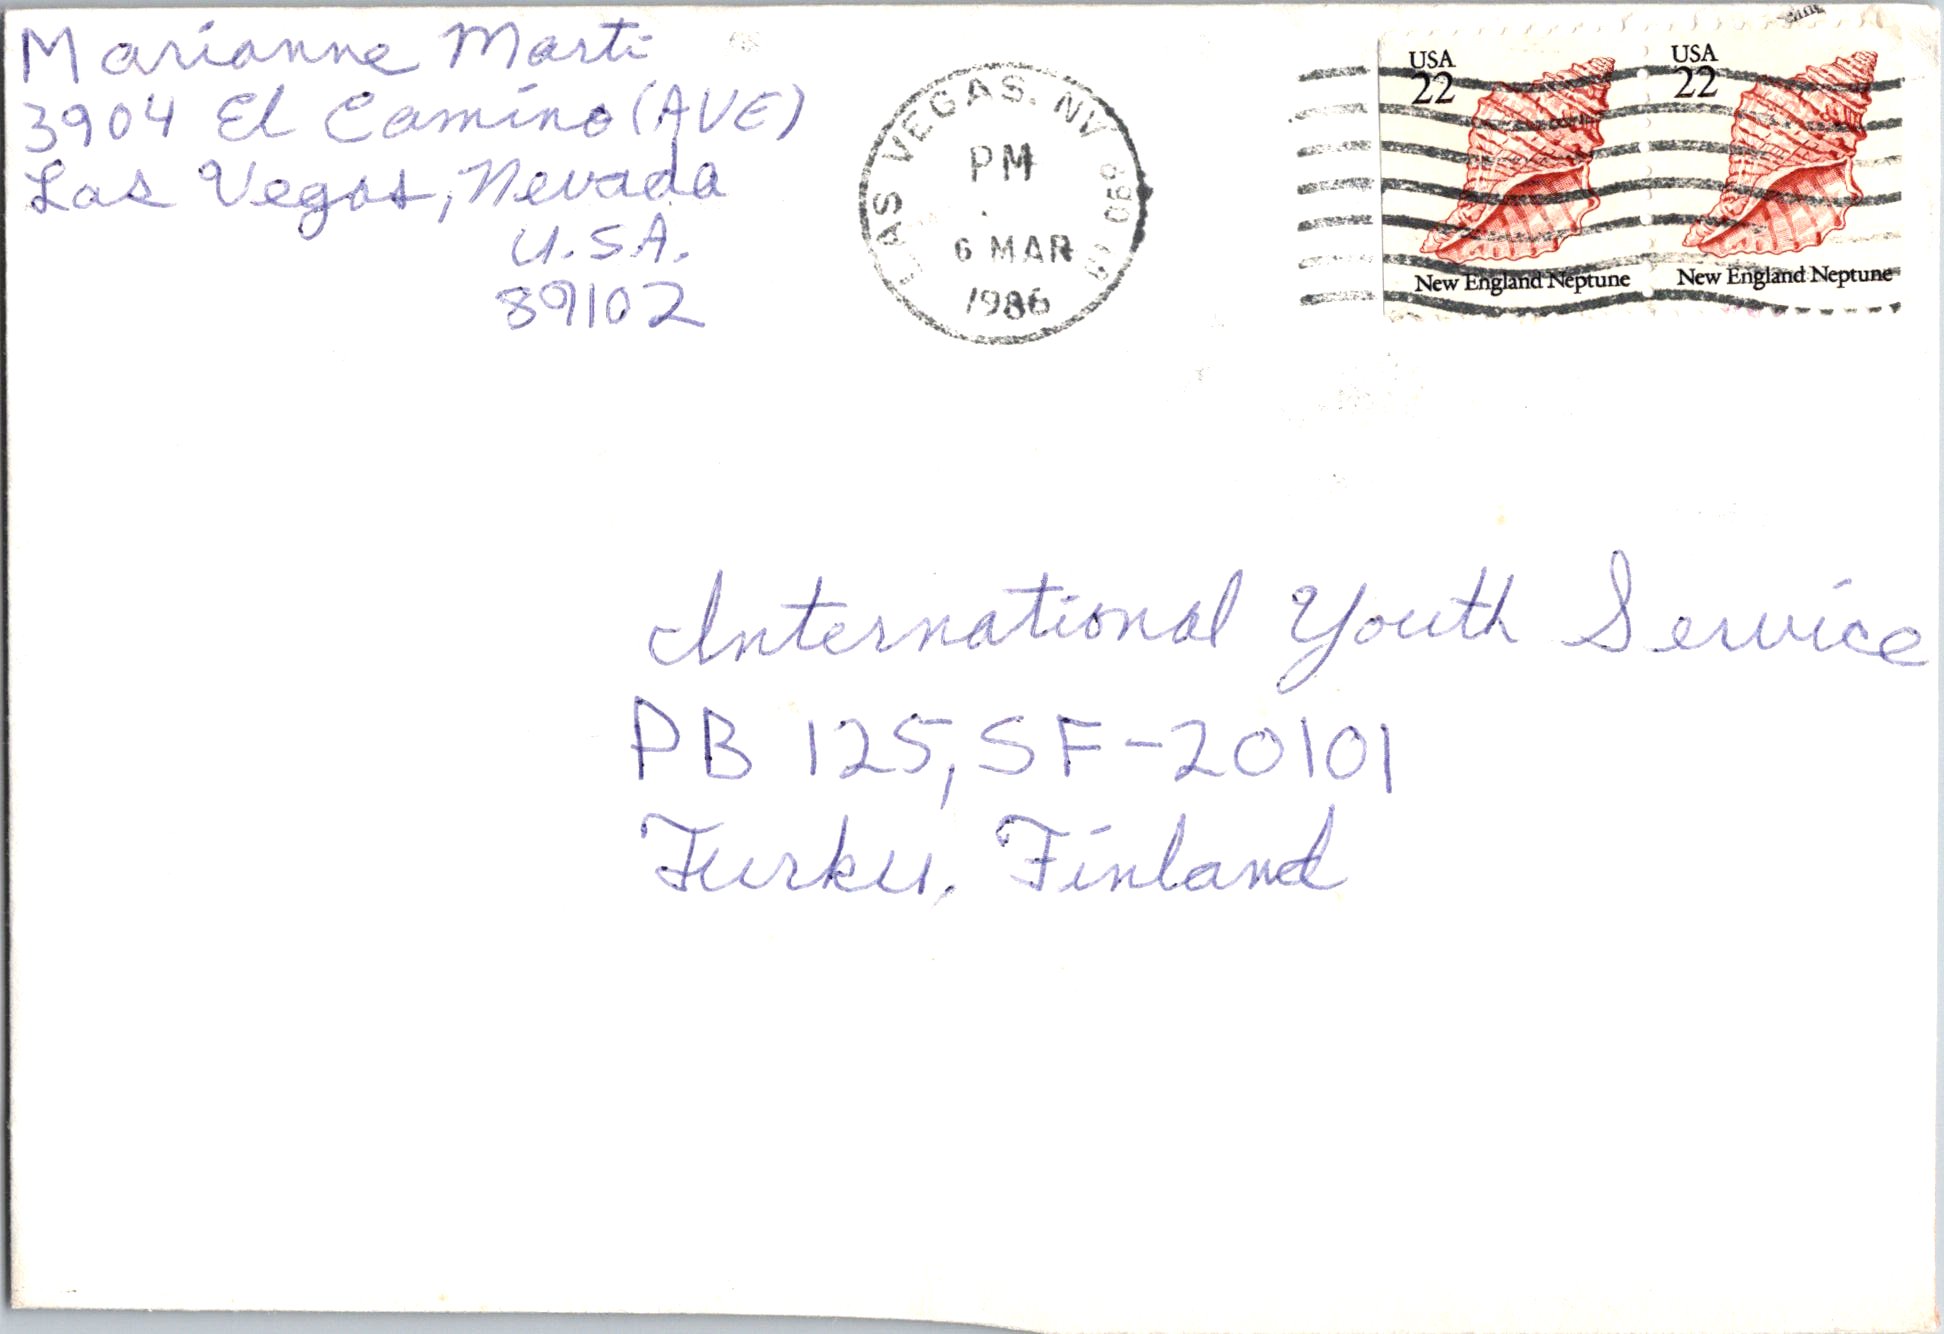 Marianne Marti
3904 El Camino (AVE)
Las Vegas, Nevada
U.S.A.
89102
LAS VEGAS, NV 890
PM
6 MAR
1986
USA
22
New England Neptune
USA
22
New England Neptune
International Youth Service
PB 125, SF-20101
Turku, Finland